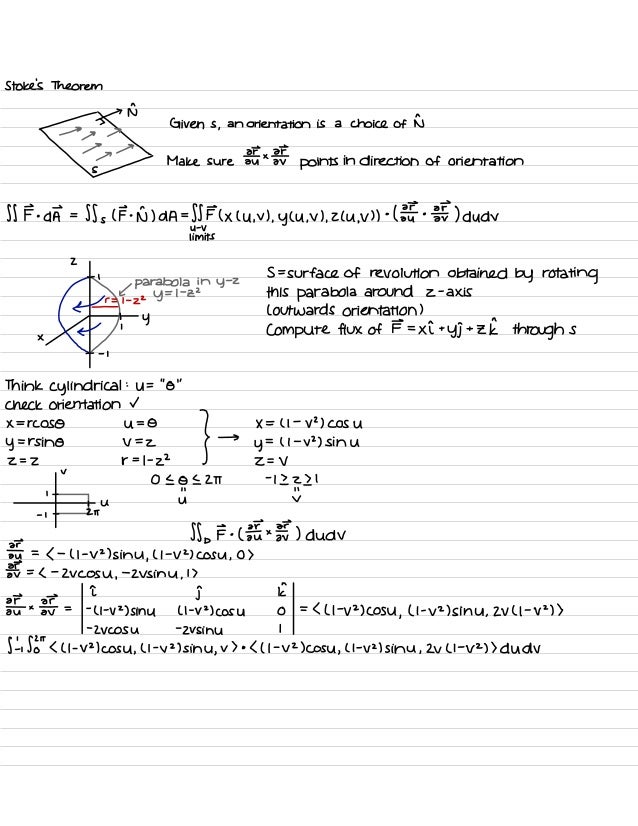 Stoke's Theorem
N̂
s
s
Given s, an orientation is a choice of N̂
Make sure ∂r⃗/∂u × ∂r⃗/∂v points in direction of orientation
∬ F⃗ · dA⃗ = ∬ₛ (F⃗ · N̂) dA = ∬ F⃗ (x(u,v), y(u,v), z(u,v)) · (∂r⃗/∂u · ∂r⃗/∂v) dudv
u-v
limits
z
1
parabola in y-z
y=1-z²
r=1-z²
y
1
x
-1
S=surface of revolution obtained by rotating
this parabola around z-axis
(outwards orientation)
Compute flux of F⃗ = xî + yĵ + zk̂ through s
Think cylindrical: u= "θ"
check orientation ✓
x=rcosθ u=θ → x= (1-v²) cos u
y=rsinθ v=z y= (1-v²) sin u
z=z r=1-z² z=v
0 ≤ θ ≤ 2π -1 ≥ z ≥ 1
" "
u v
v
1
u
-1 2π
∬_D F⃗ · (∂r⃗/∂u × ∂r⃗/∂v) dudv
∂r⃗/∂u = <-(1-v²)sinu, (1-v²)cosu, 0>
∂r⃗/∂v = <-2vcosu, -2vsinu, 1>
î ĵ k̂
∂r⃗/∂u × ∂r⃗/∂v = | -(1-v²)sinu (1-v²)cosu 0 | = <(1-v²)cosu, (1-v²)sinu, 2v(1-v²)>
-2vcosu -2vsinu 1
∫₋₁¹ ∫₀^2π <(1-v²)cosu, (1-v²)sinu, v> · <(1-v²)cosu, (1-v²)sinu, 2v(1-v²)> dudv